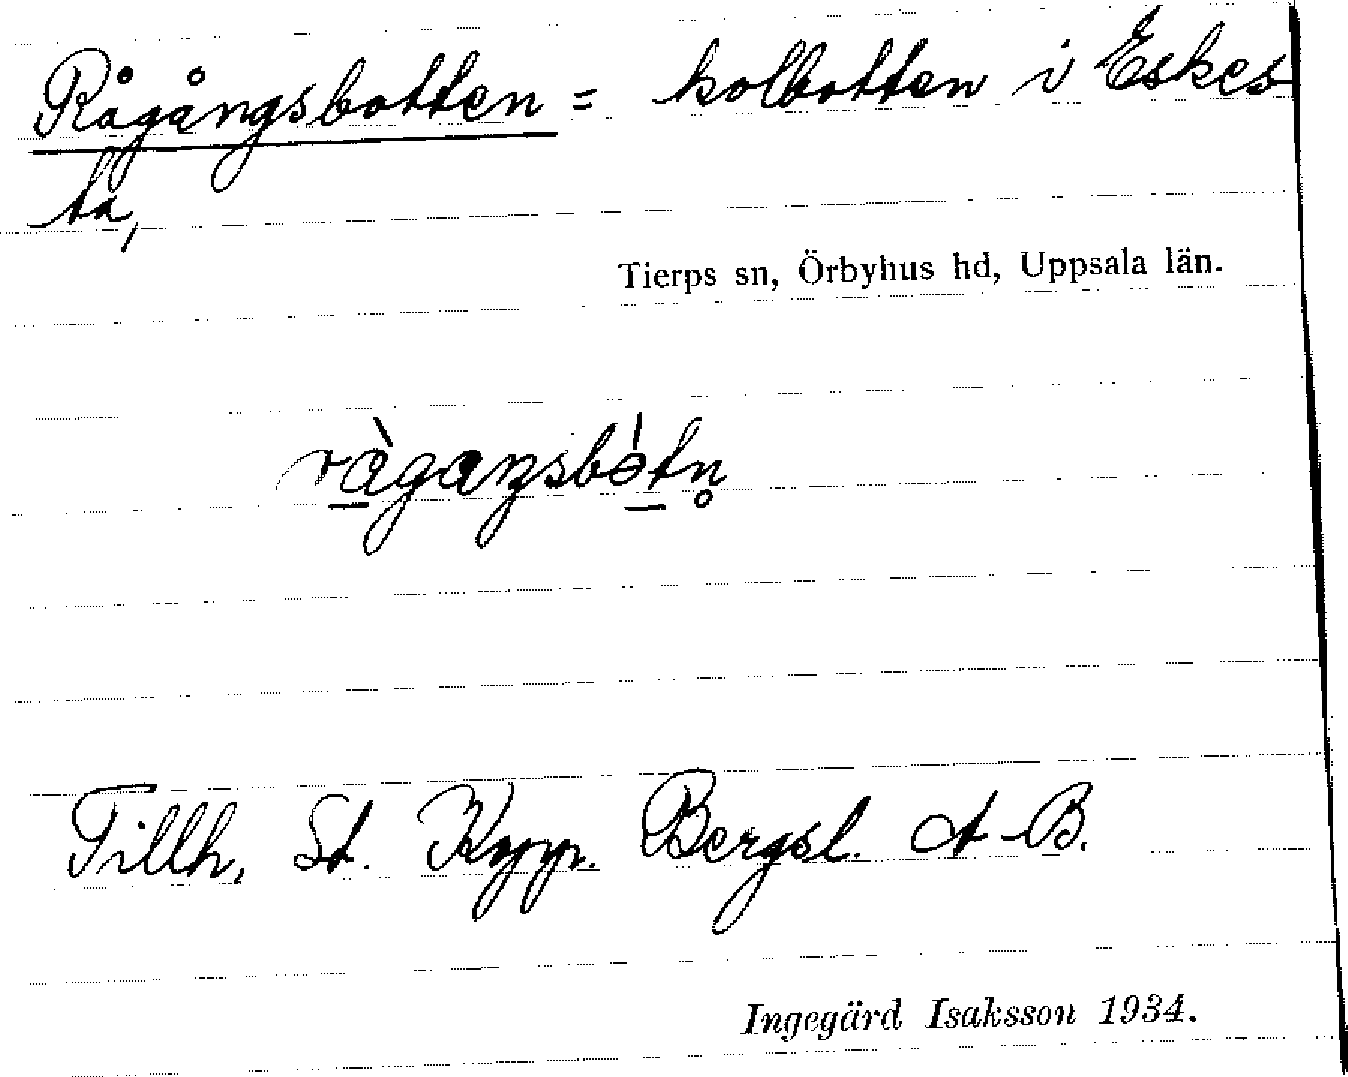 Rågångsbotten = kolbotten i Eskes-
ta,
Tierps sn, Örbyhus hd, Uppsala län.
ràgaŋsbótn̥
Tillh. St. Kopp. Bergsl. A-B.
Ingegärd Isaksson 1934.